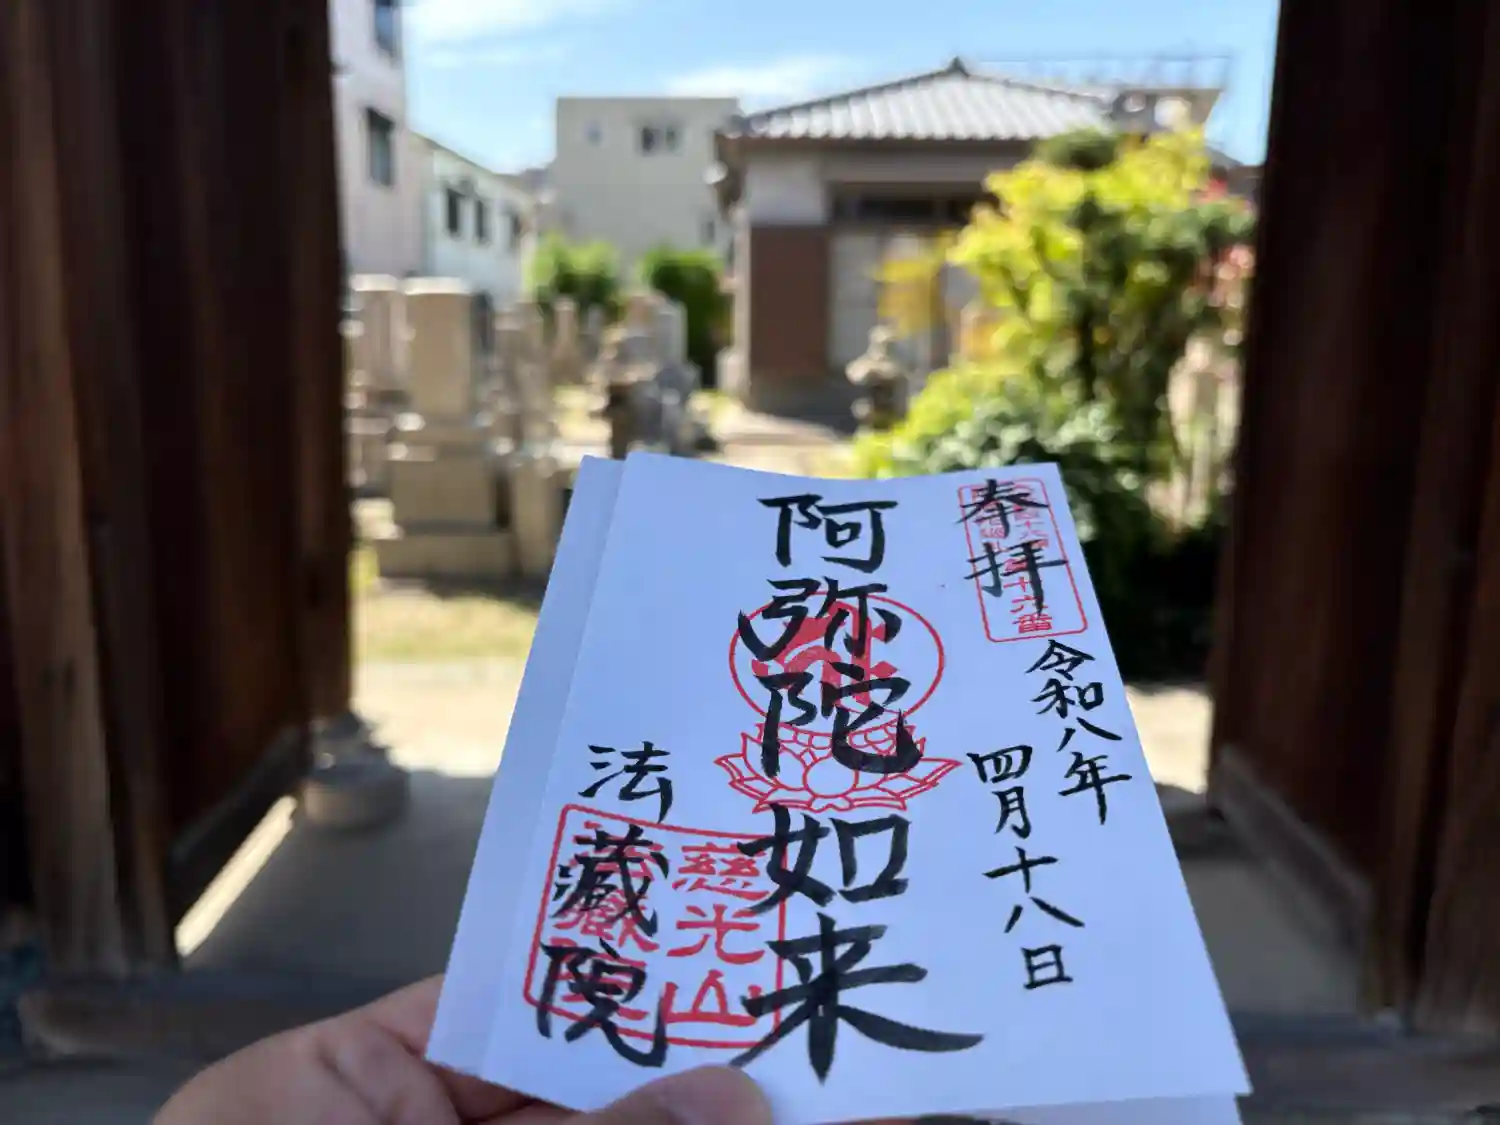 奉拝
令和八年
四月十八日
阿弥陀如来
法蔵院
慈光山